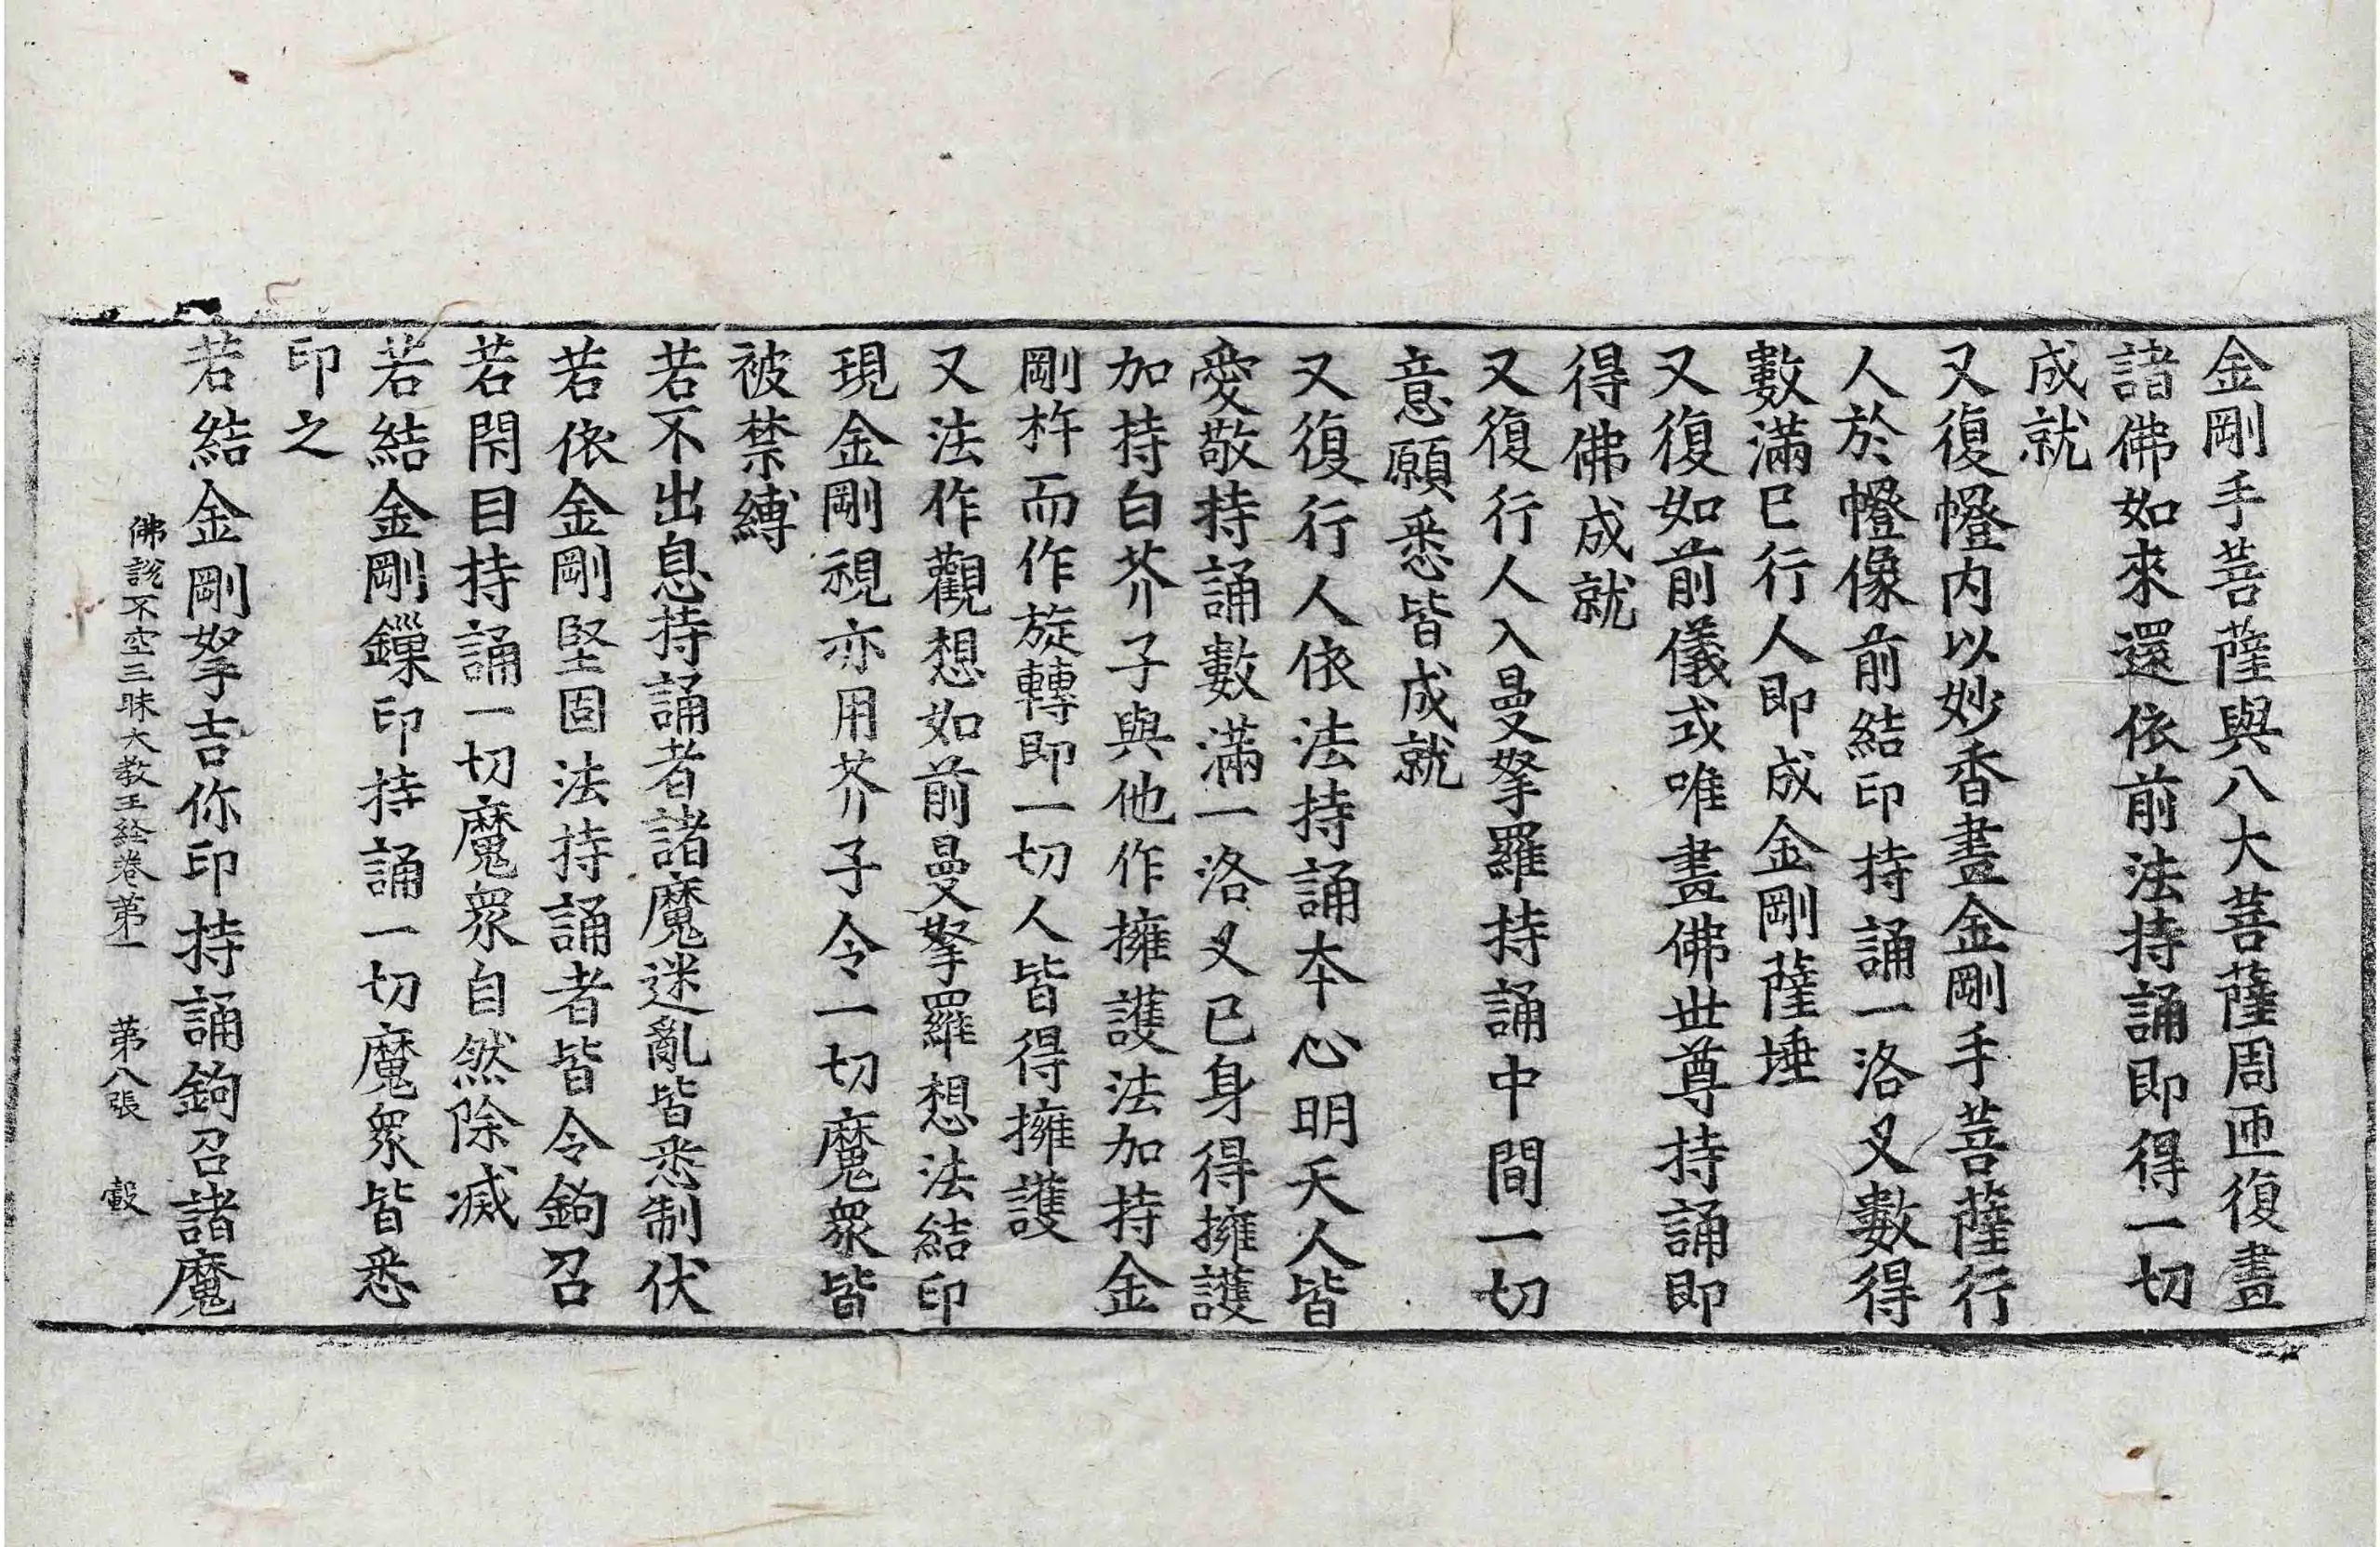 金剛手菩薩與八大菩薩周匝復畫
諸佛如來還依前法持誦即得一切
成就
又復㡧内以妙香畫金剛手菩薩行
人於㡧像前結印持誦一洛叉數得
數滿已行人即成金剛薩埵
又復如前儀或唯畫佛世尊持誦即
得佛成就
又復行人入曼拏羅持誦中間一切
意願悉皆成就
又復行人依法持誦夲心明天人皆
愛敬持誦數滿一洛叉已身得擁護
加持白芥子與他作擁護法加持金
剛杵而作旋轉即一切人皆得擁護
又法作觀想如前曼拏羅想法結印
現金剛視亦用芥子令一切魔衆皆
被禁縛
若不出息持誦者諸魔迷亂皆悉制伏
若依金剛堅固法持誦者皆令鉤召
若閇目持誦一切魔衆自然除滅
若結金剛鏁印持誦一切魔衆皆悉
印之
若結金剛拏吉你印持誦鉤召諸魔
佛說不空三昧大教王経卷苐一 苐八張 轂